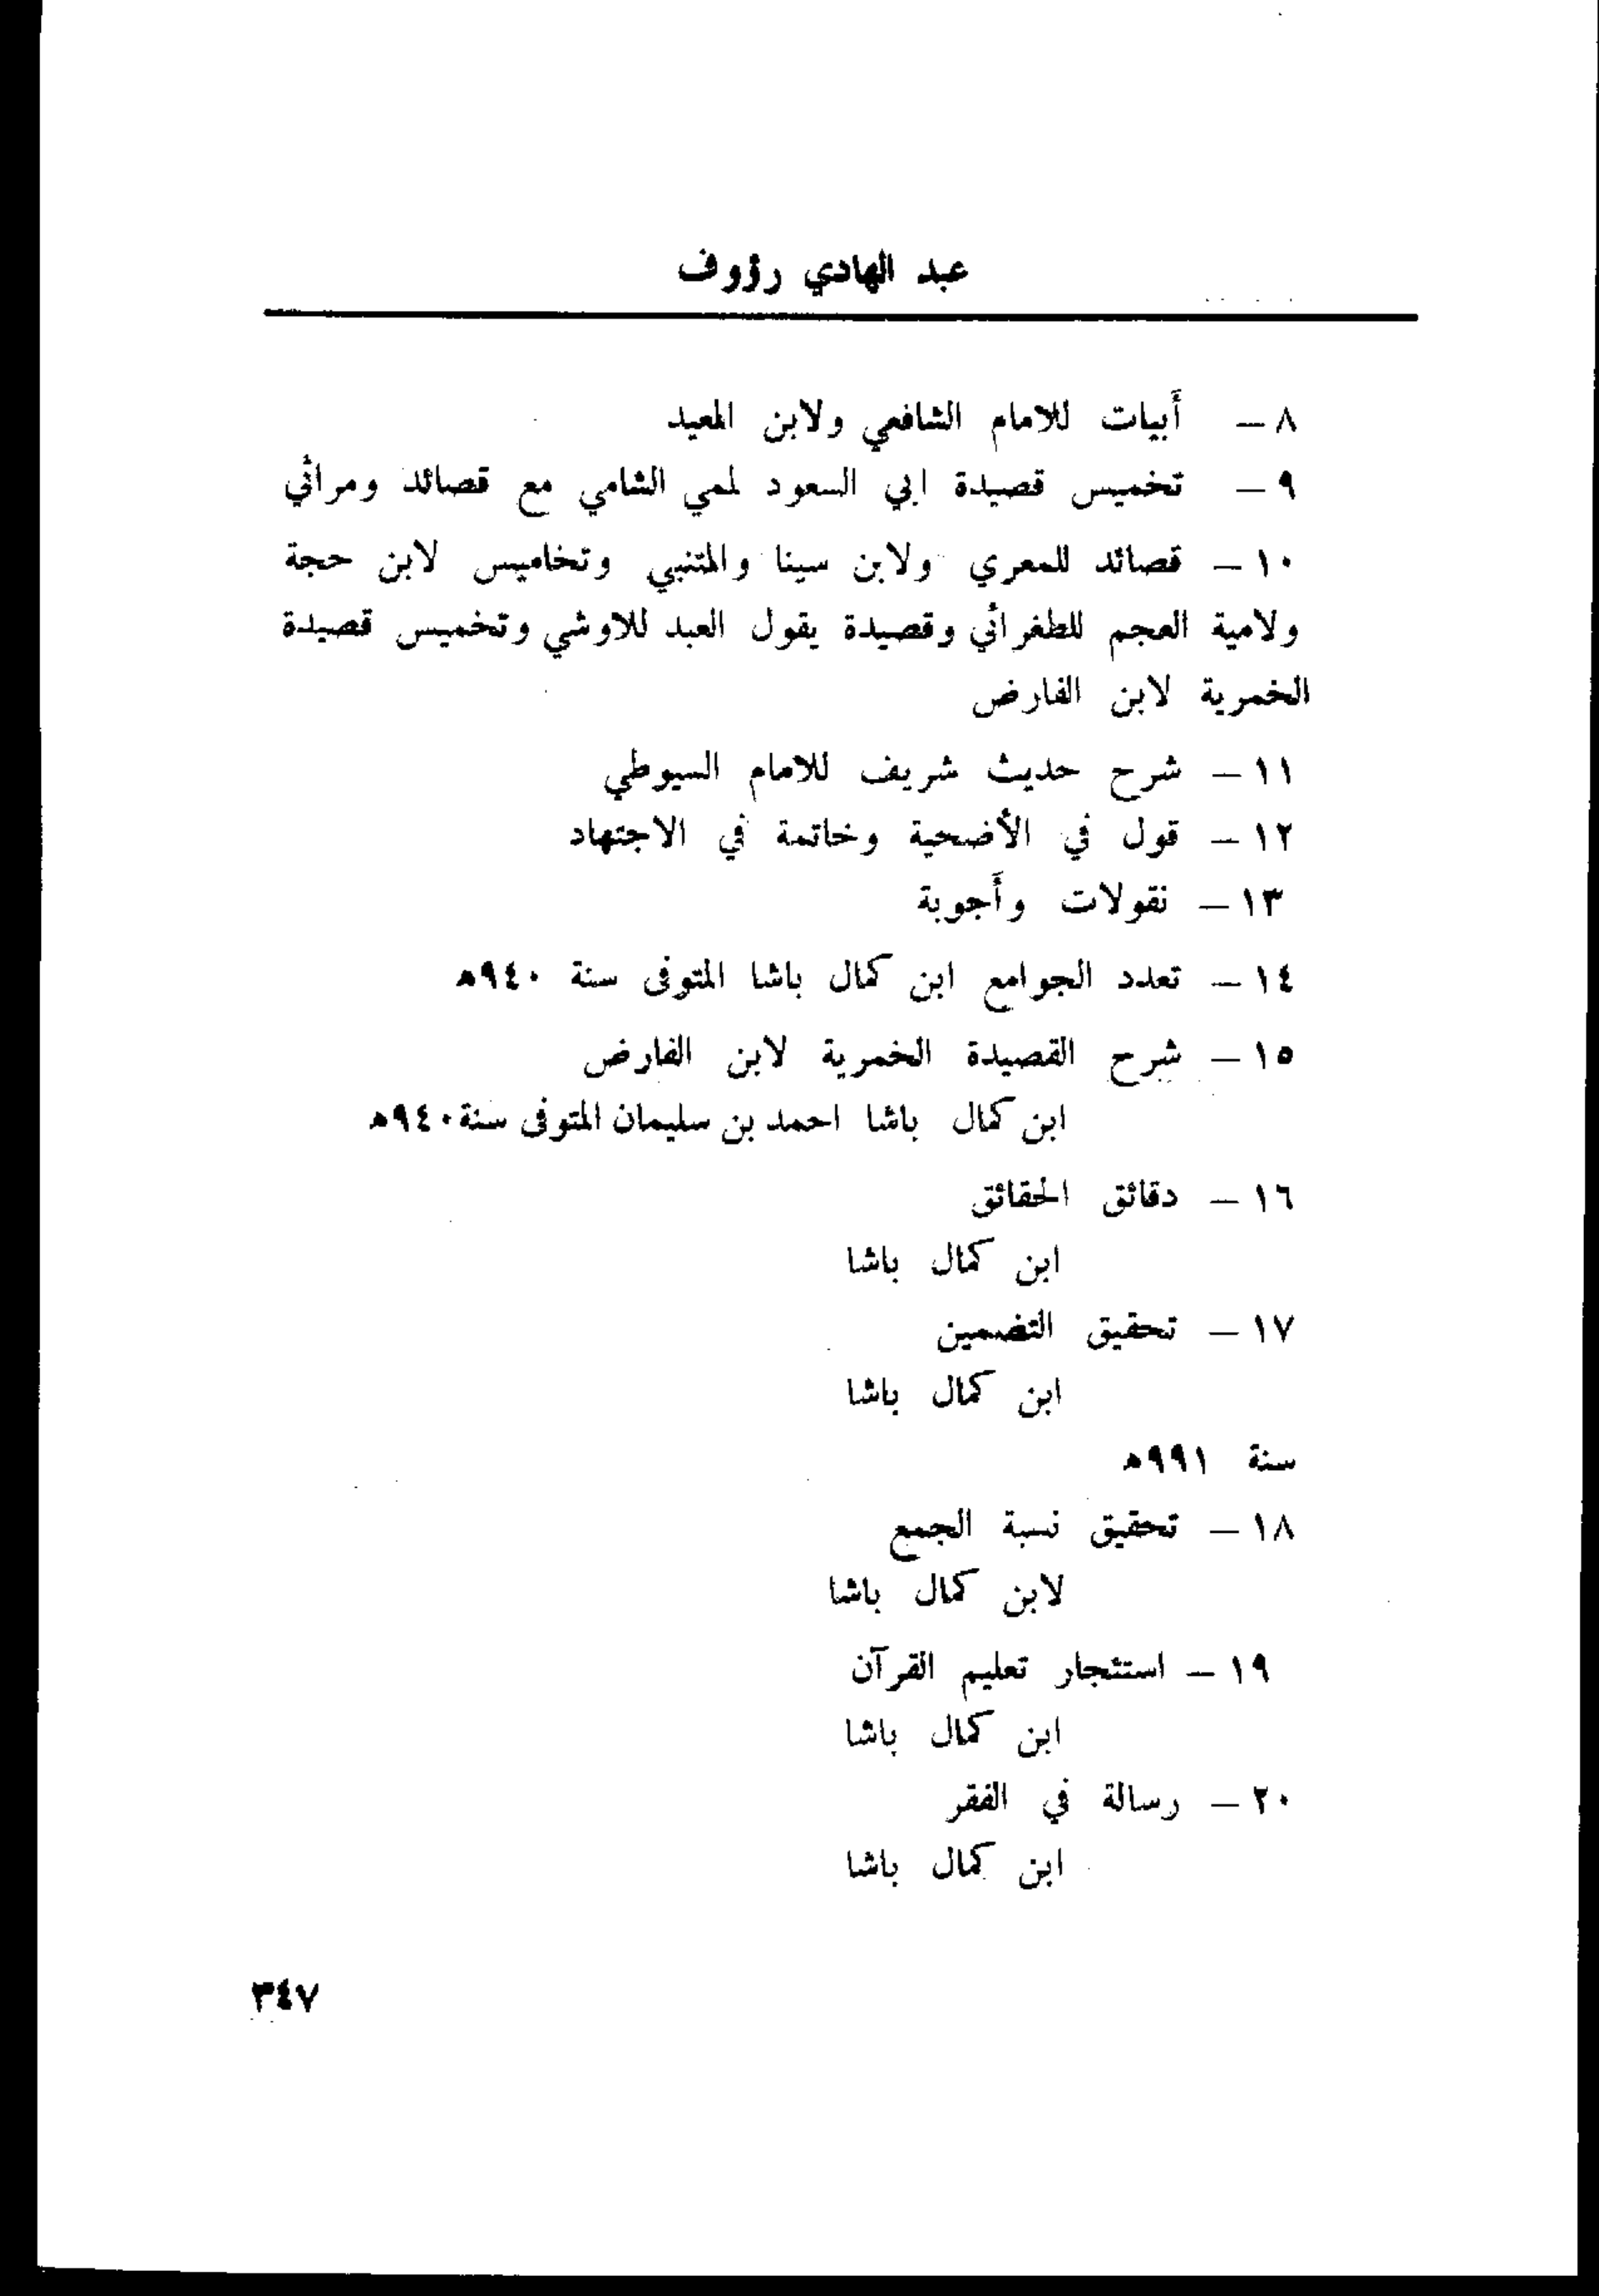 عبد الهادي رؤوف
٨ – أبيات للامام الشافعي ولابن المعيد
٩ – تخميس قصيدة ابي السعود لمي الشامي مع قصائد ومراثي
١٠ – قصائد للمعري ولابن سينا والمتنبي وتخاميس لابن حجة
ولامية العجم للطغرائي وقصيدة يقول العبد للاوشي وتخميس قصيدة
الخمرية لابن الفارض
١١ – شرح حديث شريف للامام السيوطي
١٢ – قول في الأضحية وخاتمة في الاجتهاد
١٣ – نقولات وأجوبة
١٤ – تعدد الجوامع ابن كمال باشا المتوفى سنة ٩٤٠هـ
١٥ – شرح القصيدة الخمرية لابن الفارض
ابن كمال باشا احمد بن سليمان المتوفى سنة ٩٤٠هـ
١٦ – دقائق الحقائق
ابن كمال باشا
١٧ – تحقيق التضمين
ابن كمال باشا
سنة ٩٩١هـ
١٨ – تحقيق نسبة الجمع
لابن كمال باشا
١٩ – استئجار تعليم القرآن
ابن كمال باشا
٢٠ – رسالة في الفقر
ابن كمال باشا
٣٤٧